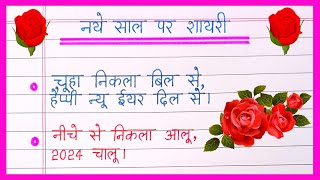 नये साल पर शायरी
चूहा निकला बिल से,
हैप्पी न्यू ईयर दिल से।
नीचे से निकला आलू,
2024 चालू।